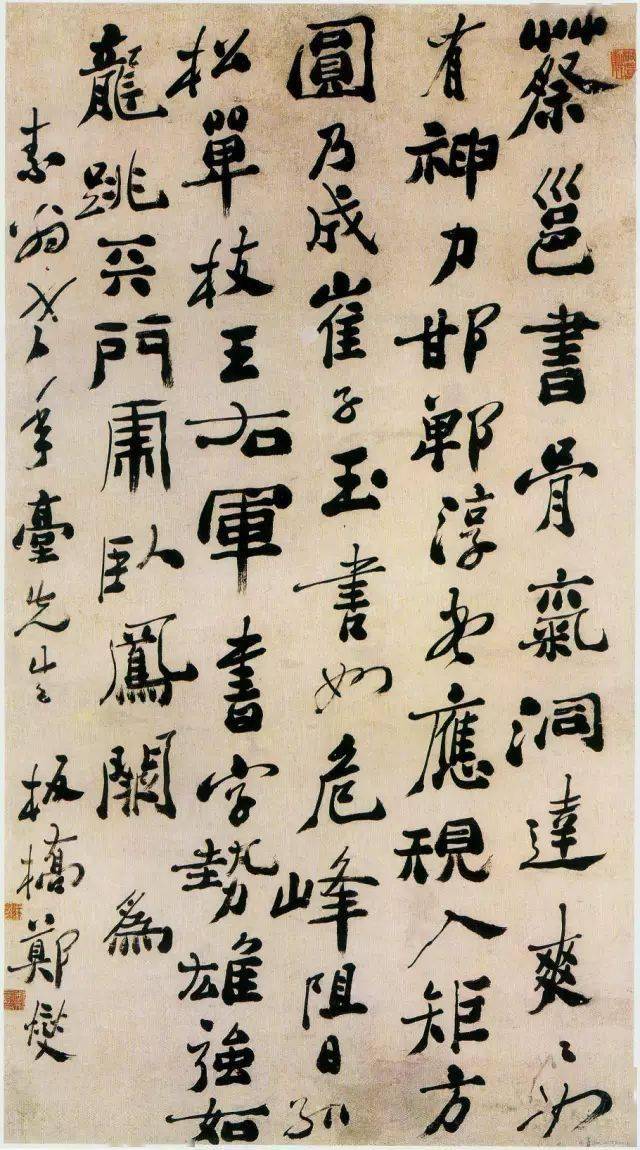 蔡邕書骨氣洞達爽々如
有神力邯鄲淳書應規入矩方
圓乃成崔子玉書如危峰阻日孤
松單枝王右軍書字勢雄強如
龍跳天門虎臥鳳闕 為
素翁老年臺先生 板橋鄭燮